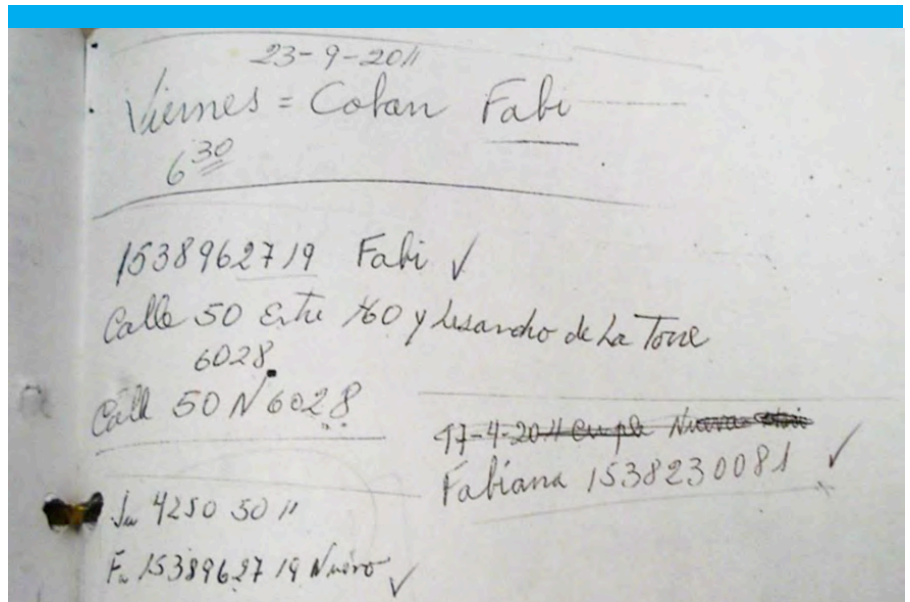 23-9-2011
Viernes = Coban Fabi
6 30
1538962719 Fabi ✓
Calle 50 Entre 160 y Lisandro de La Torre
6028
Calle 50 N 6028
17-4-2011 Cumple Nueva
Fabiana 1538230081 ✓
4250 50 11
Fa 1538962719 Nuevo ✓